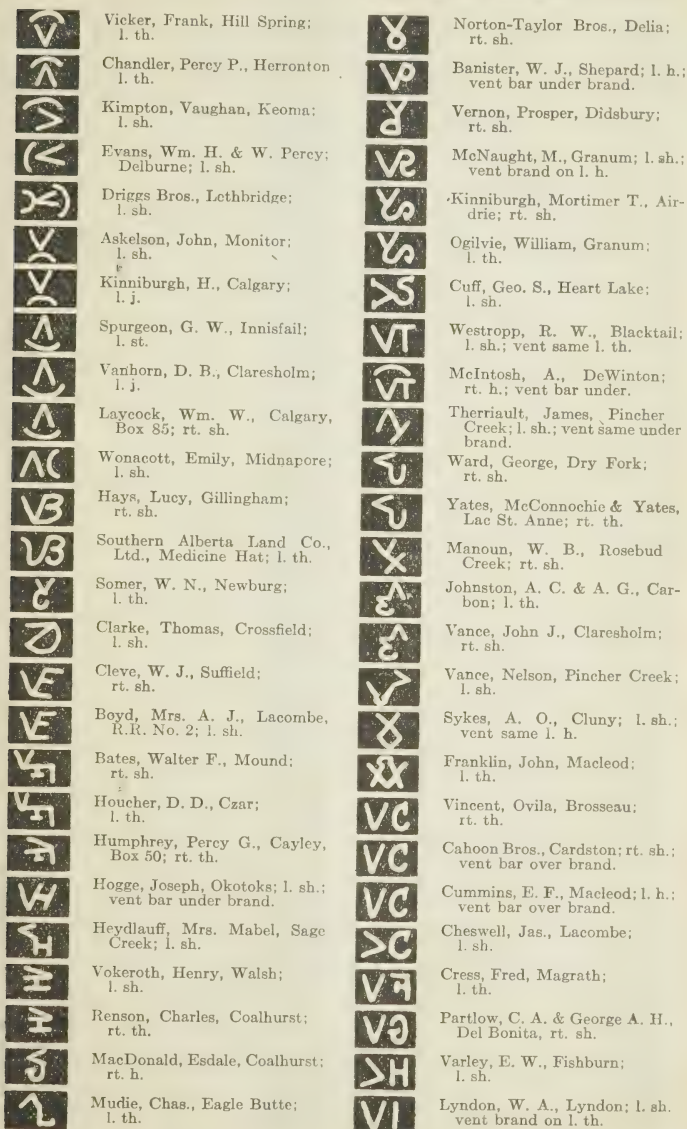 Vicker, Frank, Hill Spring;
l. th.
Chandler, Percy P., Herronton
l. th.
Kimpton, Vaughan, Keoma;
l. sh.
Evans, Wm. H. & W. Percy;
Delburne; l. sh.
Driggs Bros., Lethbridge;
l. sh.
Askelson, John, Monitor;
l. sh.
Kinniburgh, H., Calgary;
l. j.
Spurgeon, G. W., Innisfail;
l. st.
Vanhorn, D. B., Claresholm;
l. j.
Laycock, Wm. W., Calgary,
Box 85; rt. sh.
Wonacott, Emily, Midnapore;
l. sh.
Hays, Lucy, Gillingham;
rt. sh.
Southern Alberta Land Co.,
Ltd., Medicine Hat; l. th.
Somer, W. N., Newburg;
l. th.
Clarke, Thomas, Crossfield;
l. sh.
Cleve, W. J., Suffield;
rt. sh.
Boyd, Mrs. A. J., Lacombe,
R.R. No. 2; l. sh.
Bates, Walter F., Mound;
rt. sh.
Houcher, D. D., Czar;
l. th.
Humphrey, Percy G., Cayley,
Box 50; rt. th.
Hogge, Joseph, Okotoks; l. sh.;
vent bar under brand.
Heydlauff, Mrs. Mabel, Sage
Creek; l. sh.
Vokeroth, Henry, Walsh;
l. sh.
Renson, Charles, Coalhurst;
rt. th.
MacDonald, Esdale, Coalhurst;
rt. h.
Mudie, Chas., Eagle Butte;
l. th.
Norton-Taylor Bros., Delia;
rt. sh.
Banister, W. J., Shepard; l. h.;
vent bar under brand.
Vernon, Prosper, Didsbury;
rt. sh.
McNaught, M., Granum; l. sh.;
vent brand on l. h.
Kinniburgh, Mortimer T., Air-
drie; rt. sh.
Ogilvie, William, Granum;
l. th.
Cuff, Geo. S., Heart Lake;
l. sh.
VT Westropp, R. W., Blacktail;
l. sh.; vent same l. th.
McIntosh, A., DeWinton;
rt. h.; vent bar under.
Therriault, James, Pincher
Creek; l. sh.; vent same under
brand.
Ward, George, Dry Fork;
rt. sh.
Yates, McConnochie & Yates,
Lac St. Anne; rt. th.
Manoun, W. B., Rosebud
Creek; rt. sh.
Johnston, A. C. & A. G., Car-
bon; l. th.
Vance, John J., Claresholm;
rt. sh.
Vance, Nelson, Pincher Creek;
l. sh.
Sykes, A. O., Cluny; l. sh.;
vent same l. h.
Franklin, John, Macleod;
l. th.
VC Vincent, Ovila, Brosseau;
rt. th.
VC Cahoon Bros., Cardston; rt. sh.;
vent bar over brand.
VC Cummins, E. F., Macleod; l. h.;
vent bar over brand.
Cheswell, Jas., Lacombe;
l. sh.
Cress, Fred, Magrath;
l. th.
Partlow, C. A. & George A. H.,
Del Bonita, rt. sh.
Varley, E. W., Fishburn;
l. sh.
VI Lyndon, W. A., Lyndon; l. sh.
vent brand on l. th.